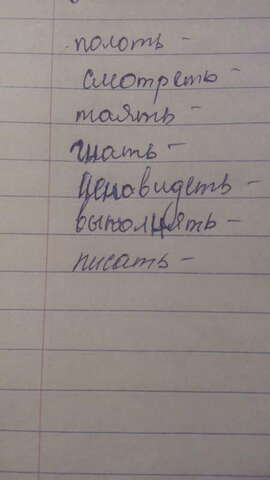 полоть -
смотреть -
таять -
гнать -
ненавидеть -
выполнять -
писать -